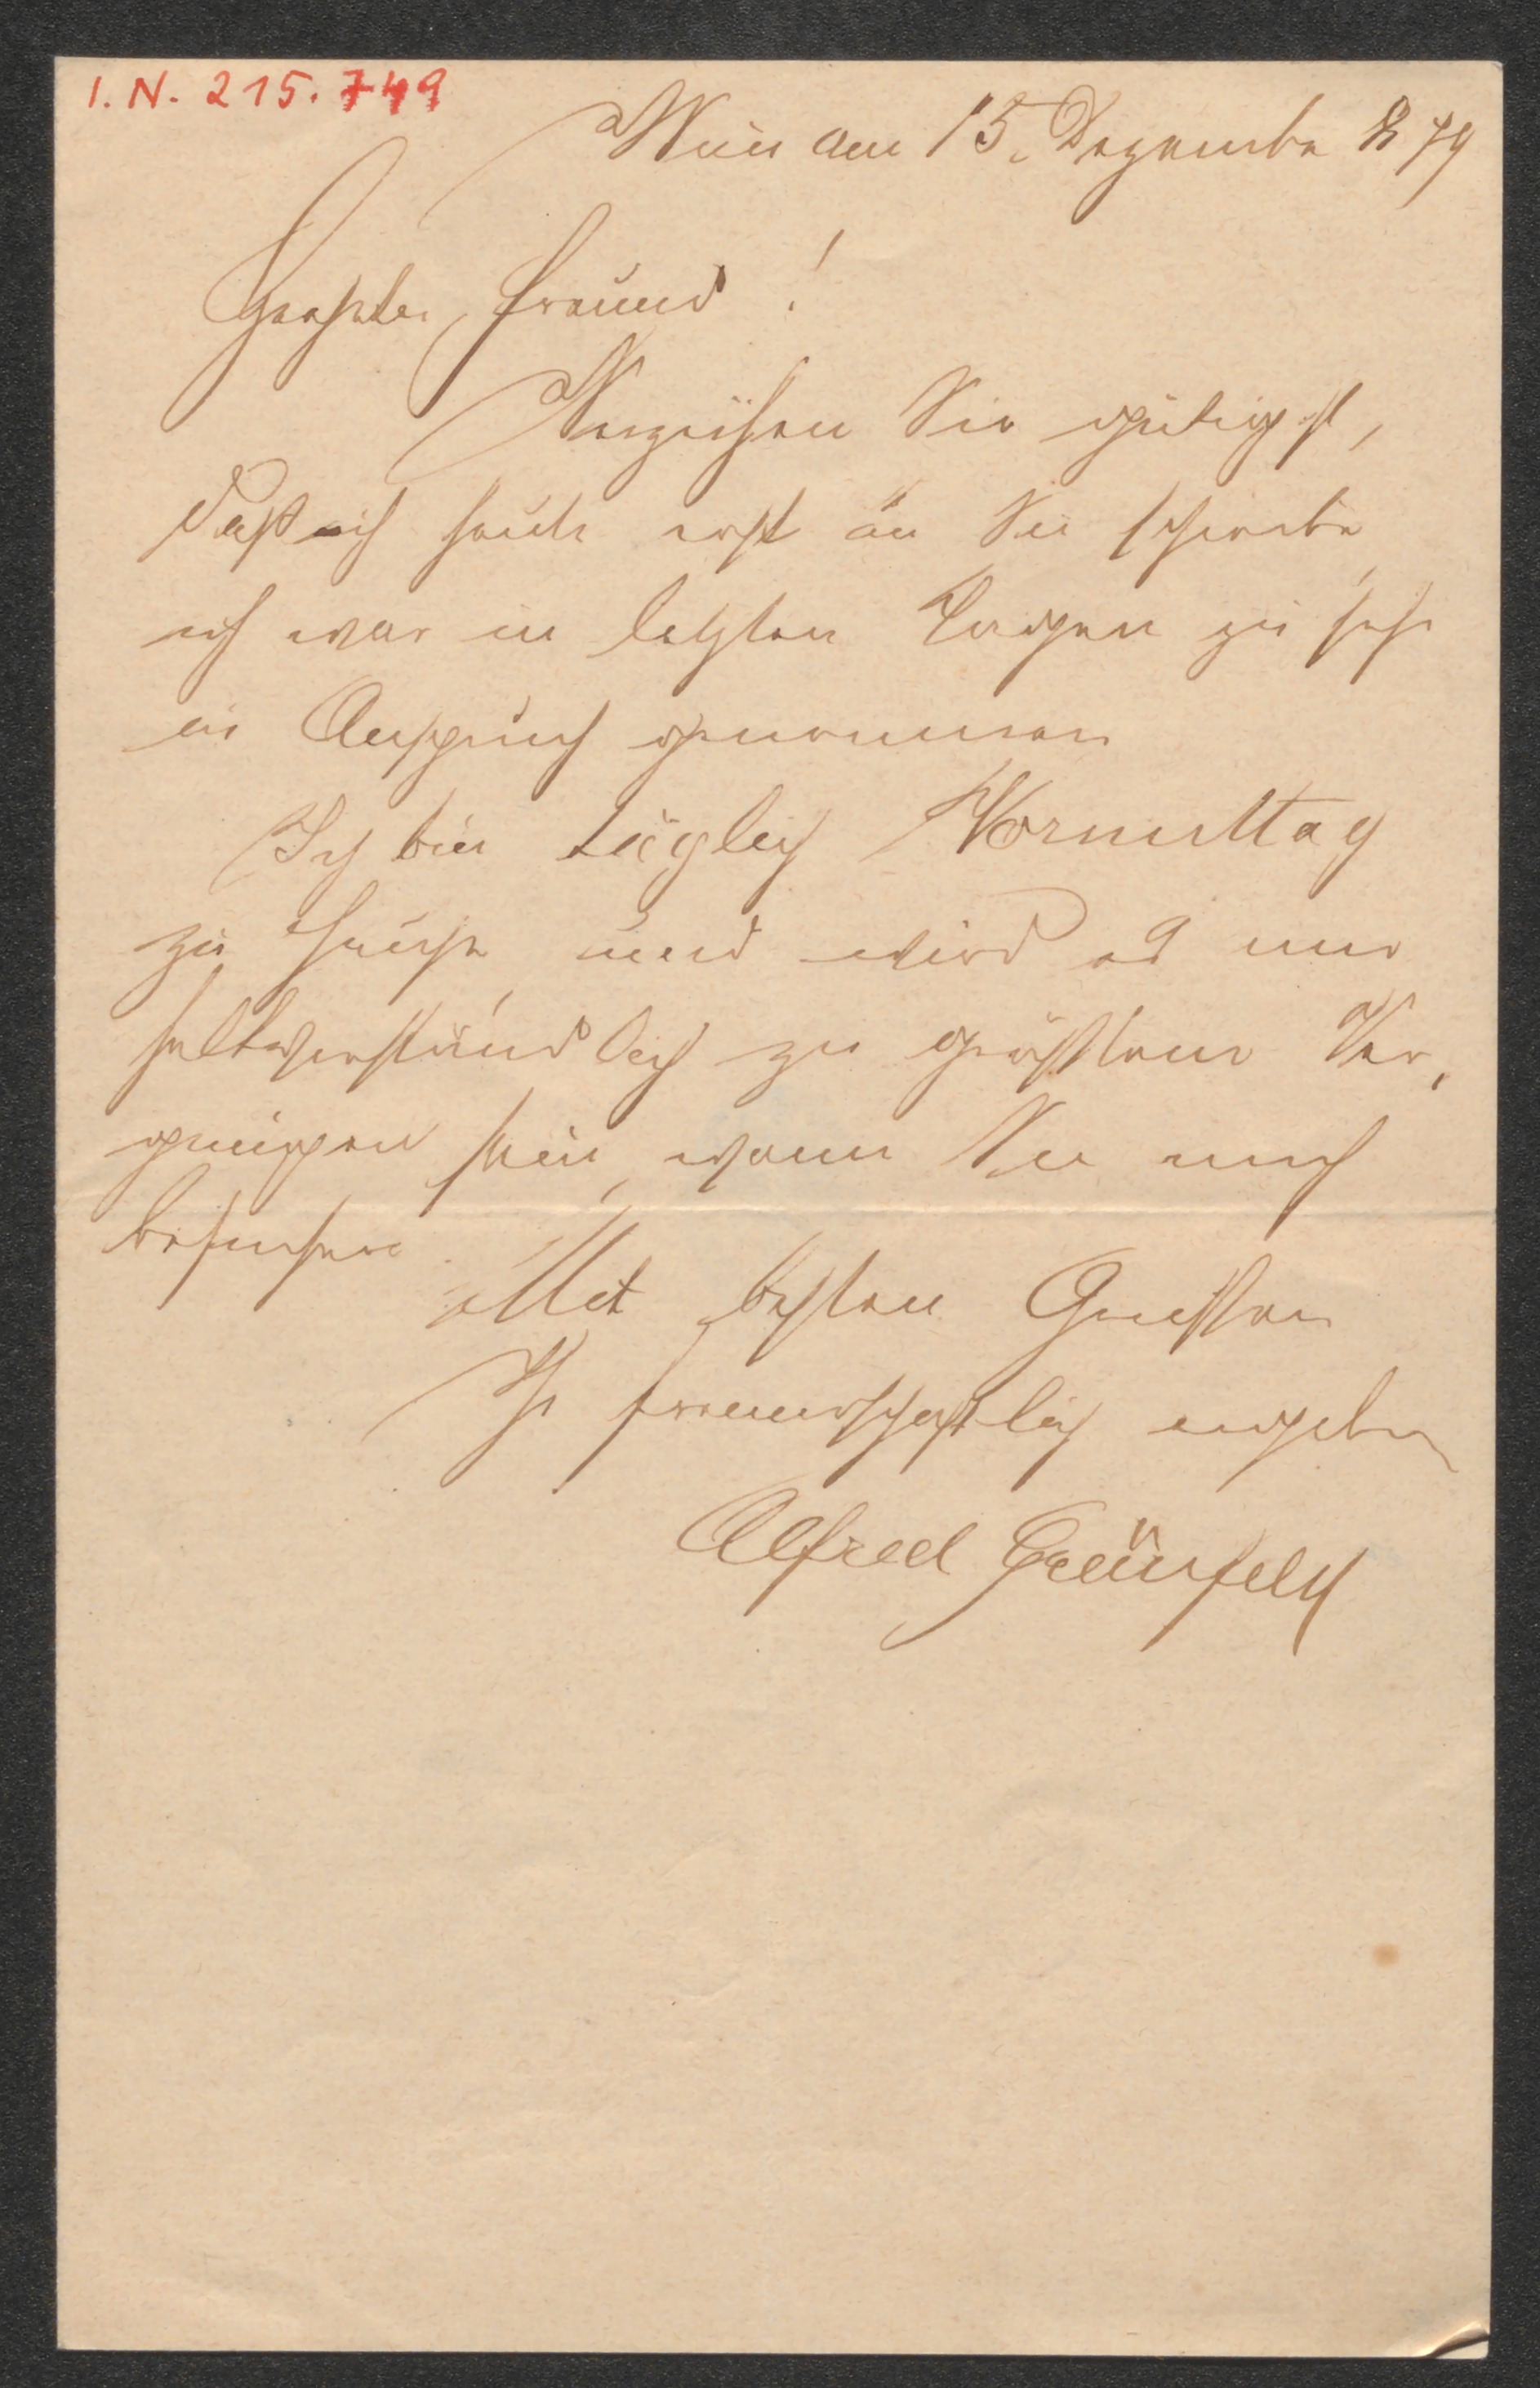 I.N. 215.749
Wien am 15. Dezember 879
Geehrter Freund!
Verzeihen Sie gütigst,
daß ich heute erst an Sie schreibe,
ich war in letzten Tagen zu sehr
in Anspruch genommen
Ich bin täglich Vormittag
zu Hause, und wird es mir
selbstverständlich zu größtem Ver,
gnügen sein, wenn Sie mich
besuchen.
Mit besten Grüssen
Ihr freundschaftlich ergeben
Alfred Grünfeld